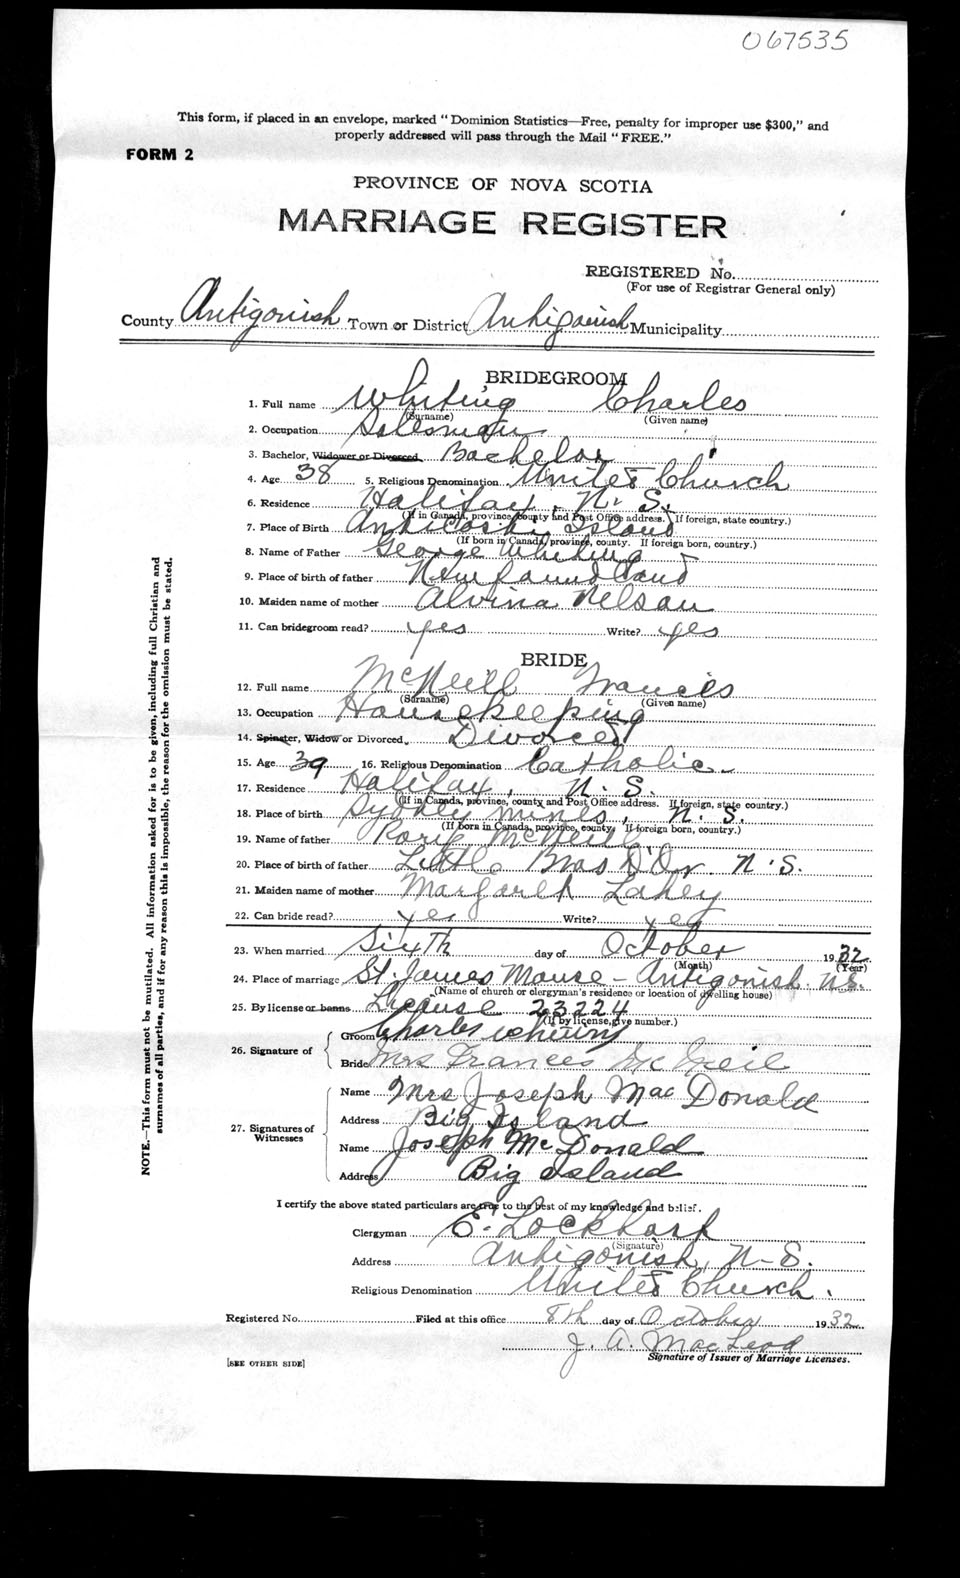 067535
This form, if placed in an envelope, marked "Dominion Statistics—Free, penalty for improper use $300," and
properly addressed will pass through the Mail "FREE."
FORM 2
PROVINCE OF NOVA SCOTIA
MARRIAGE REGISTER
REGISTERED No.
(For use of Registrar General only)
County Antigonish Town or District Antigonish Municipality
BRIDEGROOM
1. Full name Whiting Charles
(Surname) (Given name)
2. Occupation Salesman
3. Bachelor, Widower or Divorced Bachelor
4. Age 38 5. Religious Denomination United Church
6. Residence Halifax, N. S.
(If in Canada, province, county and Post Office address. If foreign, state country.)
7. Place of Birth Anticosti Island
(If born in Canada, province, county. If foreign born, country.)
8. Name of Father George Whiting
9. Place of birth of father Newfoundland
10. Maiden name of mother Alvina Nelson
11. Can bridegroom read? yes Write? yes
BRIDE
12. Full name McNeill Francis
(Surname) (Given name)
13. Occupation Housekeeping
14. Spinster, Widow or Divorced. Divorced
15. Age 39 16. Religious Denomination Catholic
17. Residence Halifax, N. S.
(If in Canada, province, county and Post Office address. If foreign, state country.)
18. Place of birth Sydney mines, N. S.
(If born in Canada, province, county. If foreign born, country.)
19. Name of father Rory McNeill
20. Place of birth of father Little Bras D'Or N. S.
21. Maiden name of mother Margaret Lahey
22. Can bride read? yes Write? yes
23. When married Sixth day of October 1932
(Month) (Year)
24. Place of marriage St. James Manse - Antigonish N.S.
(Name of church or clergyman's residence or location of dwelling house)
25. By license or banns License 23224
(If by license, give number.)
26. Signature of Groom Charles Whiting
Bride Mrs Frances McNeil
27. Signatures of Witnesses
Name Mrs Joseph MacDonald
Address Big Island
Name Joseph McDonald
Address Big Island
I certify the above stated particulars are true to the best of my knowledge and belief.
Clergyman E. Lockhart
(Signature)
Address Antigonish, N-S.
Religious Denomination United Church.
Registered No. Filed at this office 8th day of October 1932
J. A. MacLeod
Signature of Issuer of Marriage Licenses.
[SEE OTHER SIDE]
NOTE.—This form must not be mutilated. All information asked for is to be given, including full Christian and
surnames of all parties, and if for any reason this is impossible, the reason for the omission must be stated.